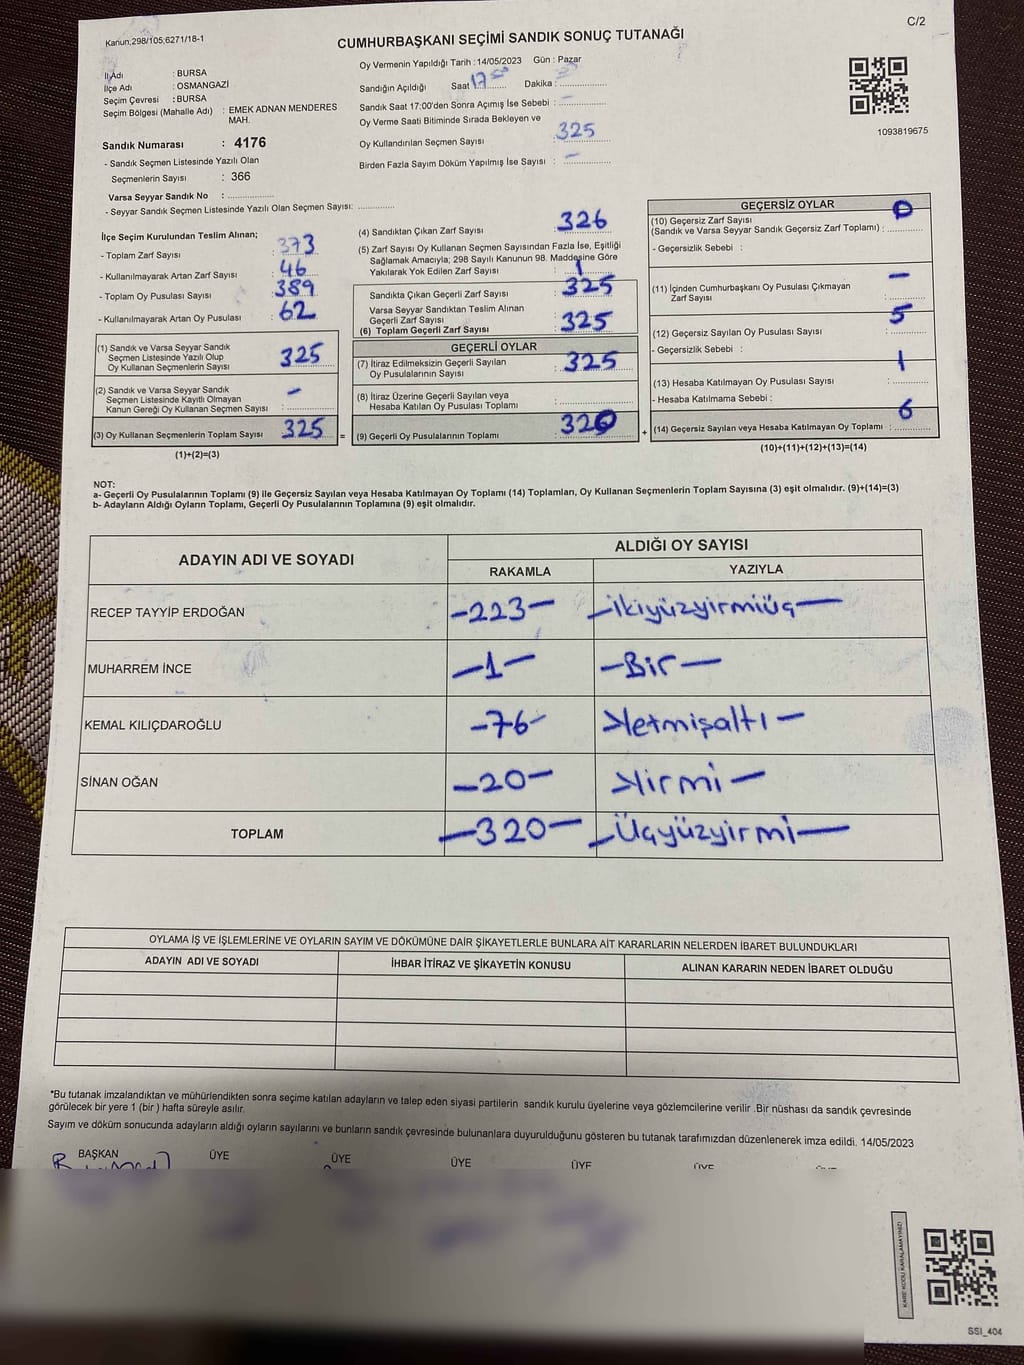 C/2
Kanun,298/105,6271/18-1
CUMHURBAŞKANI SEÇİMİ SANDIK SONUÇ TUTANAĞI
İl Adı : BURSA
İlçe Adı : OSMANGAZİ
Seçim Çevresi : BURSA
Seçim Bölgesi (Mahalle Adı) : EMEK ADNAN MENDERES
MAH.
Sandık Numarası : 4176
- Sandık Seçmen Listesinde Yazılı Olan
Seçmenlerin Sayısı : 366
Varsa Seyyar Sandık No : ..............
- Seyyar Sandık Seçmen Listesinde Yazılı Olan Seçmen Sayısı: ..............
Oy Vermenin Yapıldığı Tarih : 14/05/2023 Gün : Pazar
Sandığın Açıldığı Saat 17 Dakika :
Sandık Saat 17:00'den Sonra Açımış İse Sebebi : –
Oy Verme Saati Bitiminde Sırada Bekleyen ve
Oy Kullandırılan Seçmen Sayısı : 325
Birden Fazla Sayım Döküm Yapılmış İse Sayısı : –
1093819675
İlçe Seçim Kurulundan Teslim Alınan;
- Toplam Zarf Sayısı : 373
- Kullanılmayarak Artan Zarf Sayısı : 46
- Toplam Oy Pusulası Sayısı : 389
- Kullanılmayarak Artan Oy Pusulası : 62
(1) Sandık ve Varsa Seyyar Sandık
Seçmen Listesinde Yazılı Olup
Oy Kullanan Seçmenlerin Sayısı : 325
(2) Sandık ve Varsa Seyyar Sandık
Seçmen Listesinde Kayıtlı Olmayan
Kanun Gereği Oy Kullanan Seçmen Sayısı : –
(3) Oy Kullanan Seçmenlerin Toplam Sayısı : 325
(1)+(2)=(3)
(4) Sandıktan Çıkan Zarf Sayısı : 326
(5) Zarf Sayısı Oy Kullanan Seçmen Sayısından Fazla İse, Eşitliği
Sağlamak Amacıyla; 298 Sayılı Kanunun 98. Maddesine Göre
Yakılarak Yok Edilen Zarf Sayısı : 1
Sandıkta Çıkan Geçerli Zarf Sayısı : 325
Varsa Seyyar Sandıktan Teslim Alınan
Geçerli Zarf Sayısı
(6) Toplam Geçerli Zarf Sayısı : 325
GEÇERLİ OYLAR
(7) İtiraz Edilmeksizin Geçerli Sayılan
Oy Pusulalarının Sayısı : 325
(8) İtiraz Üzerine Geçerli Sayılan veya
Hesaba Katılan Oy Pusulası Toplamı :
= (9) Geçerli Oy Pusulalarının Toplamı : 320
GEÇERSİZ OYLAR
(10) Geçersiz Zarf Sayısı
(Sandık ve Varsa Seyyar Sandık Geçersiz Zarf Toplamı) : 0
- Geçersizlik Sebebi :
(11) İçinden Cumhurbaşkanı Oy Pusulası Çıkmayan
Zarf Sayısı : –
(12) Geçersiz Sayılan Oy Pusulası Sayısı : 5
- Geçersizlik Sebebi :
(13) Hesaba Katılmayan Oy Pusulası Sayısı : 1
- Hesaba Katılmama Sebebi :
+ (14) Geçersiz Sayılan veya Hesaba Katılmayan Oy Toplamı : 6
(10)+(11)+(12)+(13)=(14)
NOT:
a- Geçerli Oy Pusulalarının Toplamı (9) ile Geçersiz Sayılan veya Hesaba Katılmayan Oy Toplamı (14) Toplamları, Oy Kullanan Seçmenlerin Toplam Sayısına (3) eşit olmalıdır. (9)+(14)=(3)
b- Adayların Aldığı Oyların Toplamı, Geçerli Oy Pusulalarının Toplamına (9) eşit olmalıdır.
ADAYIN ADI VE SOYADI ALDIĞI OY SAYISI
RAKAMLA YAZIYLA
RECEP TAYYİP ERDOĞAN –223– –ikiyüzyirmiüç–
MUHARREM İNCE –1– –Bir–
KEMAL KILIÇDAROĞLU –76– Yetmişaltı–
SİNAN OĞAN –20– Yirmi–
TOPLAM –320– –Üçyüzyirmi–
OYLAMA İŞ VE İŞLEMLERİNE VE OYLARIN SAYIM VE DÖKÜMÜNE DAİR ŞİKAYETLERLE BUNLARA AİT KARARLARIN NELERDEN İBARET BULUNDUKLARI
ADAYIN ADI VE SOYADI İHBAR İTİRAZ VE ŞİKAYETİN KONUSU ALINAN KARARIN NEDEN İBARET OLDUĞU
*Bu tutanak imzalandıktan ve mühürlendikten sonra seçime katılan adayların ve talep eden siyasi partilerin sandık kurulu üyelerine veya gözlemcilerine verilir .Bir nüshası da sandık çevresinde
görülecek bir yere 1 (bir ) hafta süreyle asılır.
Sayım ve döküm sonucunda adayların aldığı oyların sayılarını ve bunların sandık çevresinde bulunanlara duyurulduğunu gösteren bu tutanak tarafımızdan düzenlenerek imza edildi. 14/05/2023
BAŞKAN ÜYE ÜYE ÜYE ÜYE ÜYE
KARE KODU KARALAMAYINIZ!
SSI_404